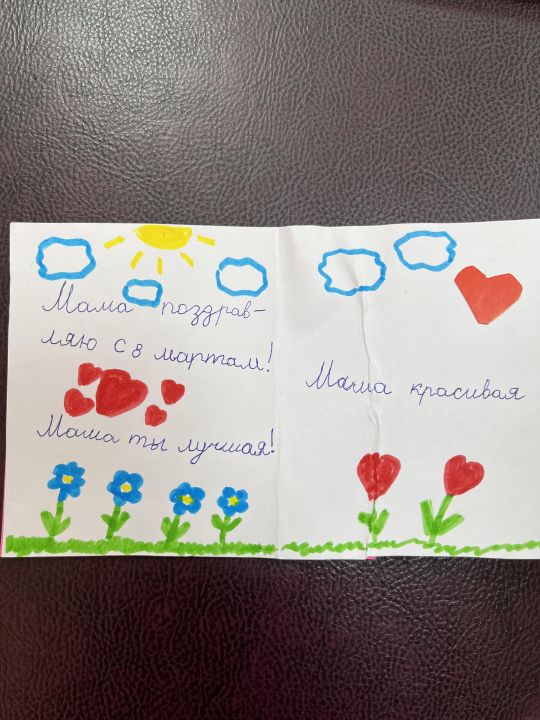 Мама поздрав-
ляю с 8 мартам!
Мама ты лучшая!
Мама красивая